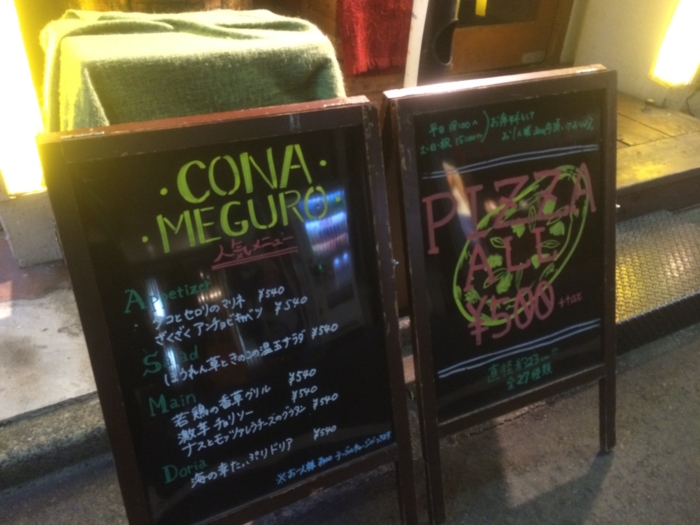 ・CONA・
・MEGURO・
人気メニュー
Appetizer
タコとセロリのマリネ ¥540
ざくざくアンチョビキャベツ ¥540
Salad
ほうれん草ときのこの温玉サラダ ¥540
Main
若鶏の香草グリル ¥540
激辛チョリソー ¥540
ナスとモッツァレラチーズのグラタン ¥540
Doria
海の幸たっぷりドリア ¥540
※お一人様
平日
土・日・祝
お席料として
お1人様
PIZZA
ALL
¥500 +tax
直径約23cm
全27種類